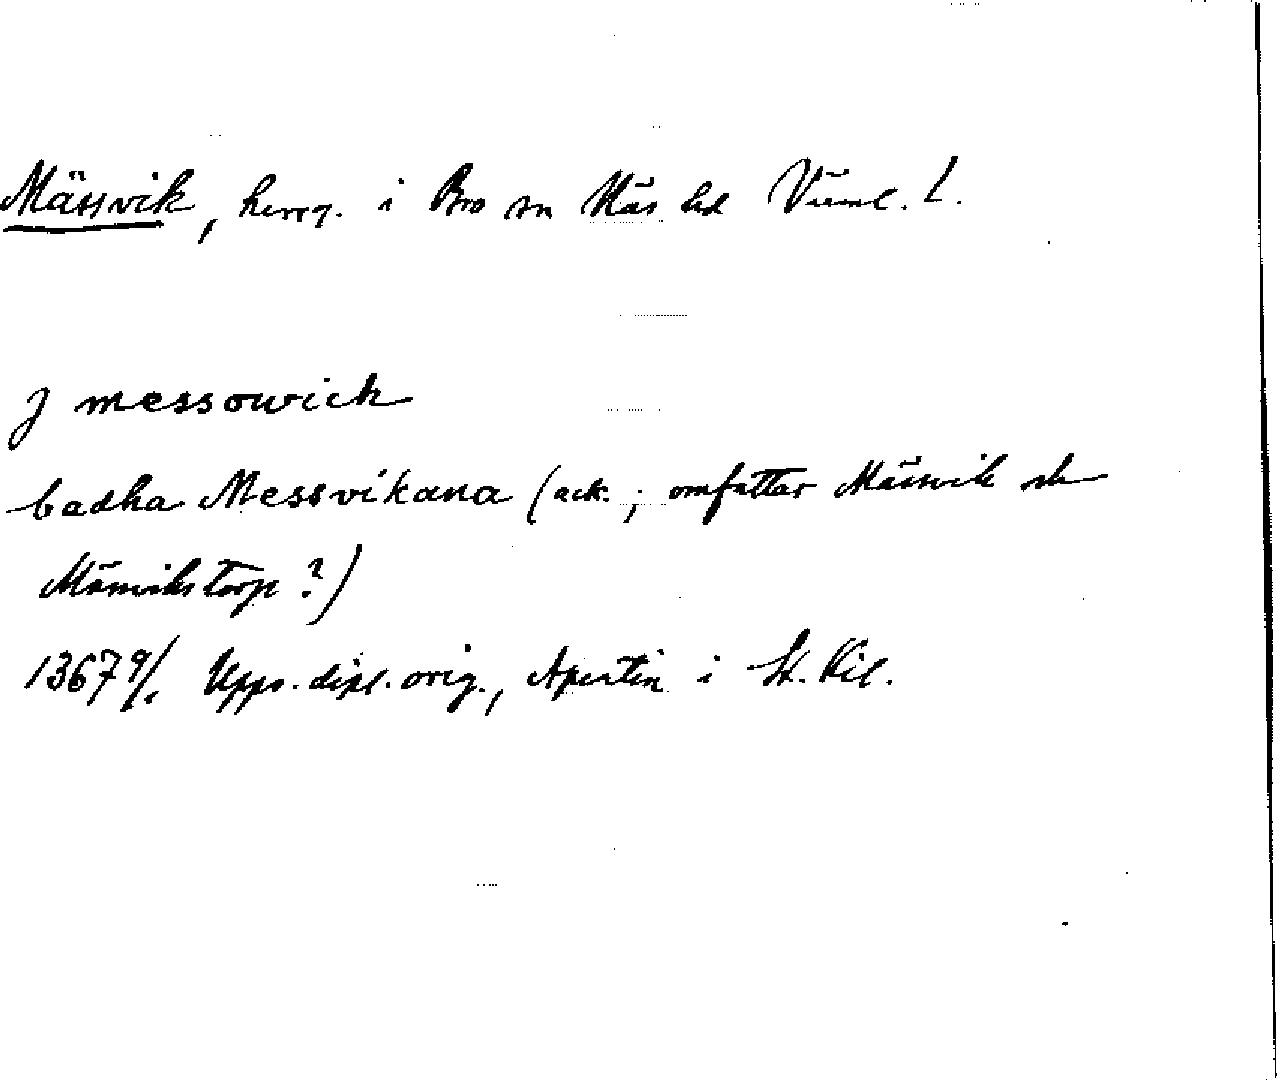 Mässvik, herrg. i Bro sn Näs hd Värml. l.
J messowich
badha Messvikana (ack.; omfattar Mässvik och
Mässvikstorp?)
1367 9/1 Upps. dipl. orig., Apertin i St. Kil.